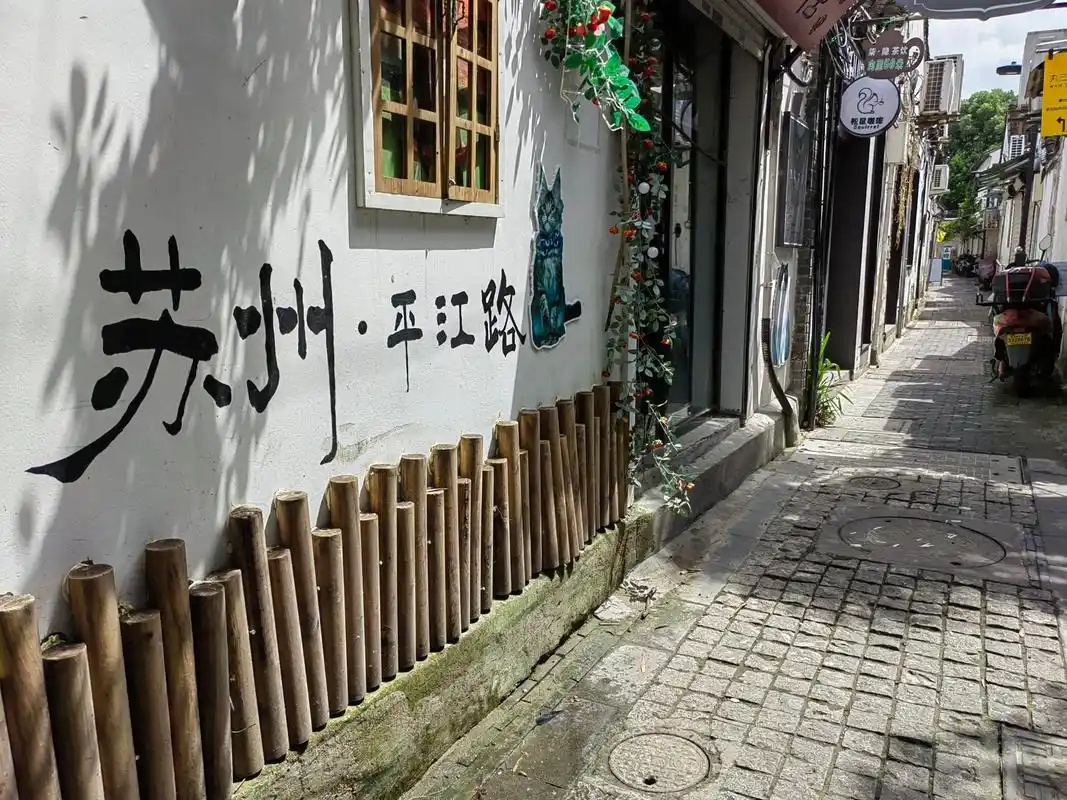 苏州·平江路
柒·隐茶饮
松鼠咖啡
Squirrel